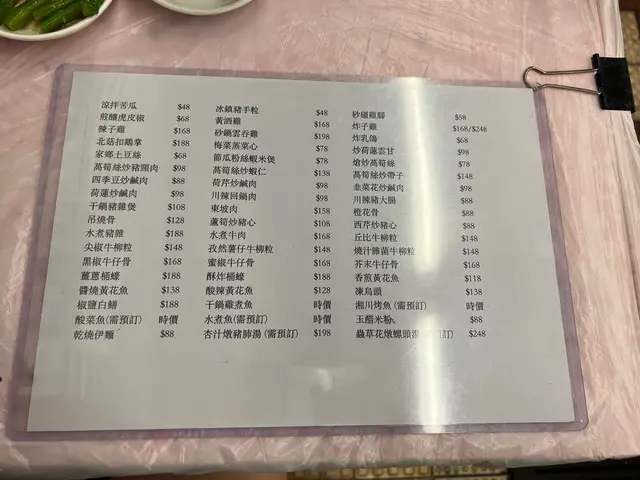 涼拌苦瓜 $48
煎釀虎皮椒 $68
辣子雞 $168
北菇扣鵝掌 $188
家鄉土豆絲 $68
萵筍絲炒豬頸肉 $98
四季豆炒鹹肉 $88
荷蓮炒鹹肉 $98
干鍋豬雜煲 $108
吊燒骨 $128
水煮豬雜 $188
尖椒牛柳粒 $148
黑椒牛仔骨 $168
薑蔥桶蠔 $188
醬燒黃花魚 $138
椒鹽白鱔 $188
酸菜魚(需預訂) 時價
乾燒伊麵 $88
冰鎮豬手粒 $48
黃酒雞 $168
砂鍋雲吞雞 $198
梅菜蒸菜心 $78
節瓜粉絲蝦米煲 $78
萵筍絲炒蝦仁 $138
荷芹炒鹹肉 $98
川辣回鍋肉 $98
東坡肉 $158
蘆筍炒豬心 $108
水煮牛肉 $168
孜然薯仔牛柳粒 $148
蜜椒牛仔骨 $168
酥炸桶蠔 $188
酸辣黃花魚 $128
干鍋雞煮魚 時價
水煮魚(需預訂) 時價
杏汁燉豬肺湯(需預訂) $198
砂礓雞腳 $58
炸子雞 $168/$248
炸乳鴿 $68
炒荷蓮雲甘 $98
熗炒萵筍絲 $78
萵筍絲炒帶子 $148
韭菜花炒鹹肉 $98
川辣豬大腸 $88
橙花骨 $88
西芹炒豬心 $88
丘比牛柳粒 $148
燒汁雜菌牛柳粒 $148
芥末牛仔骨 $168
香煎黃花魚 $118
凍烏頭 $138
湘川烤魚(需預訂) 時價
玉醋米粉 $88
蟲草花燉螺頭湯 訂) $248